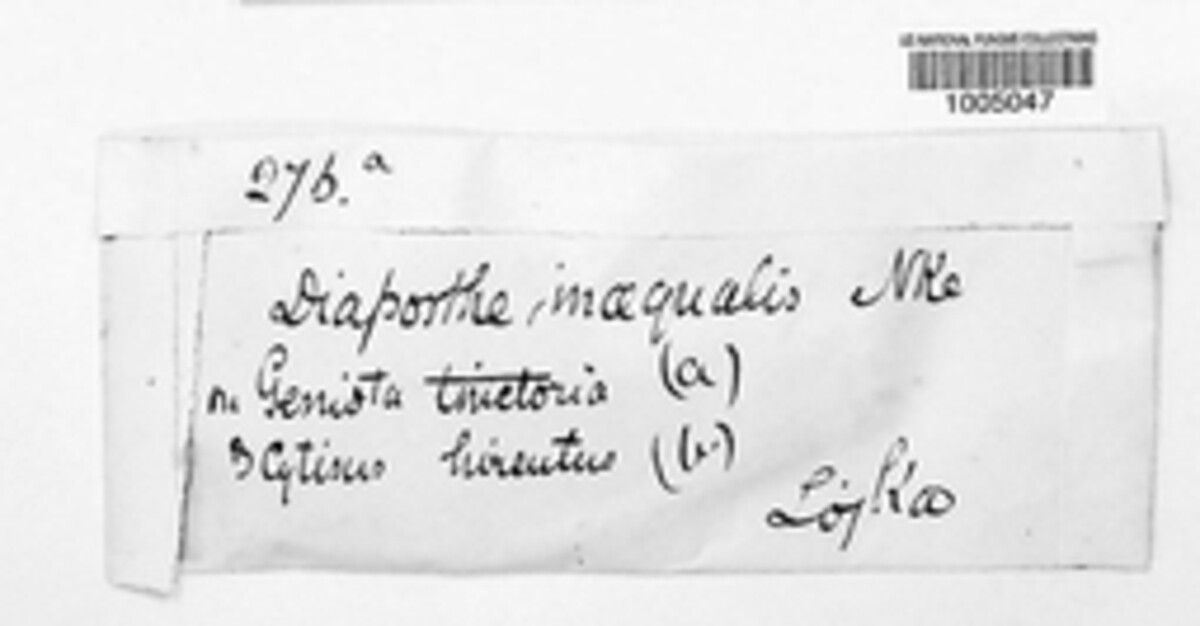 US NATIONAL FUNGUS COLLECTIONS
1005047
276.a
Diaporthe inæqualis Nke
Genista tinctoria (a)
Cytisus hirsutus (b)
Lojka